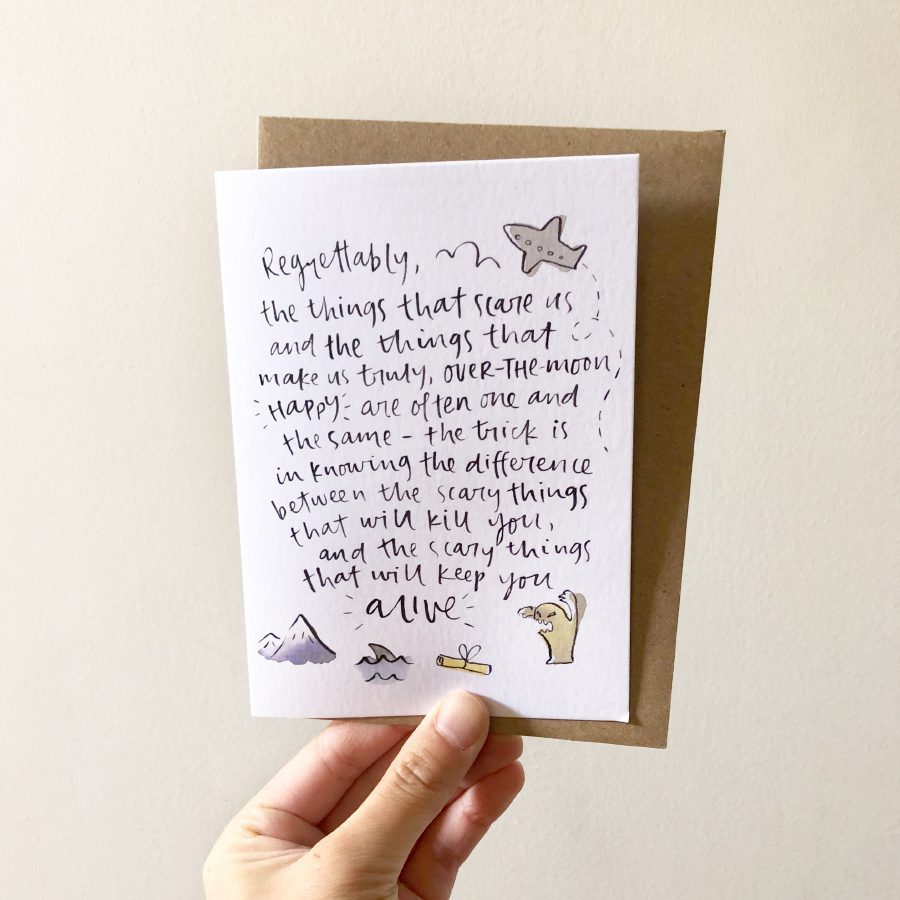 Regrettably,
the things that scare us
and the things that
make us truly, OVER-THE-MOON,
HAPPY are often one and
the same - the trick is
in knowing the difference
between the scary things
that will kill you,
and the scary things
that will keep you
alive